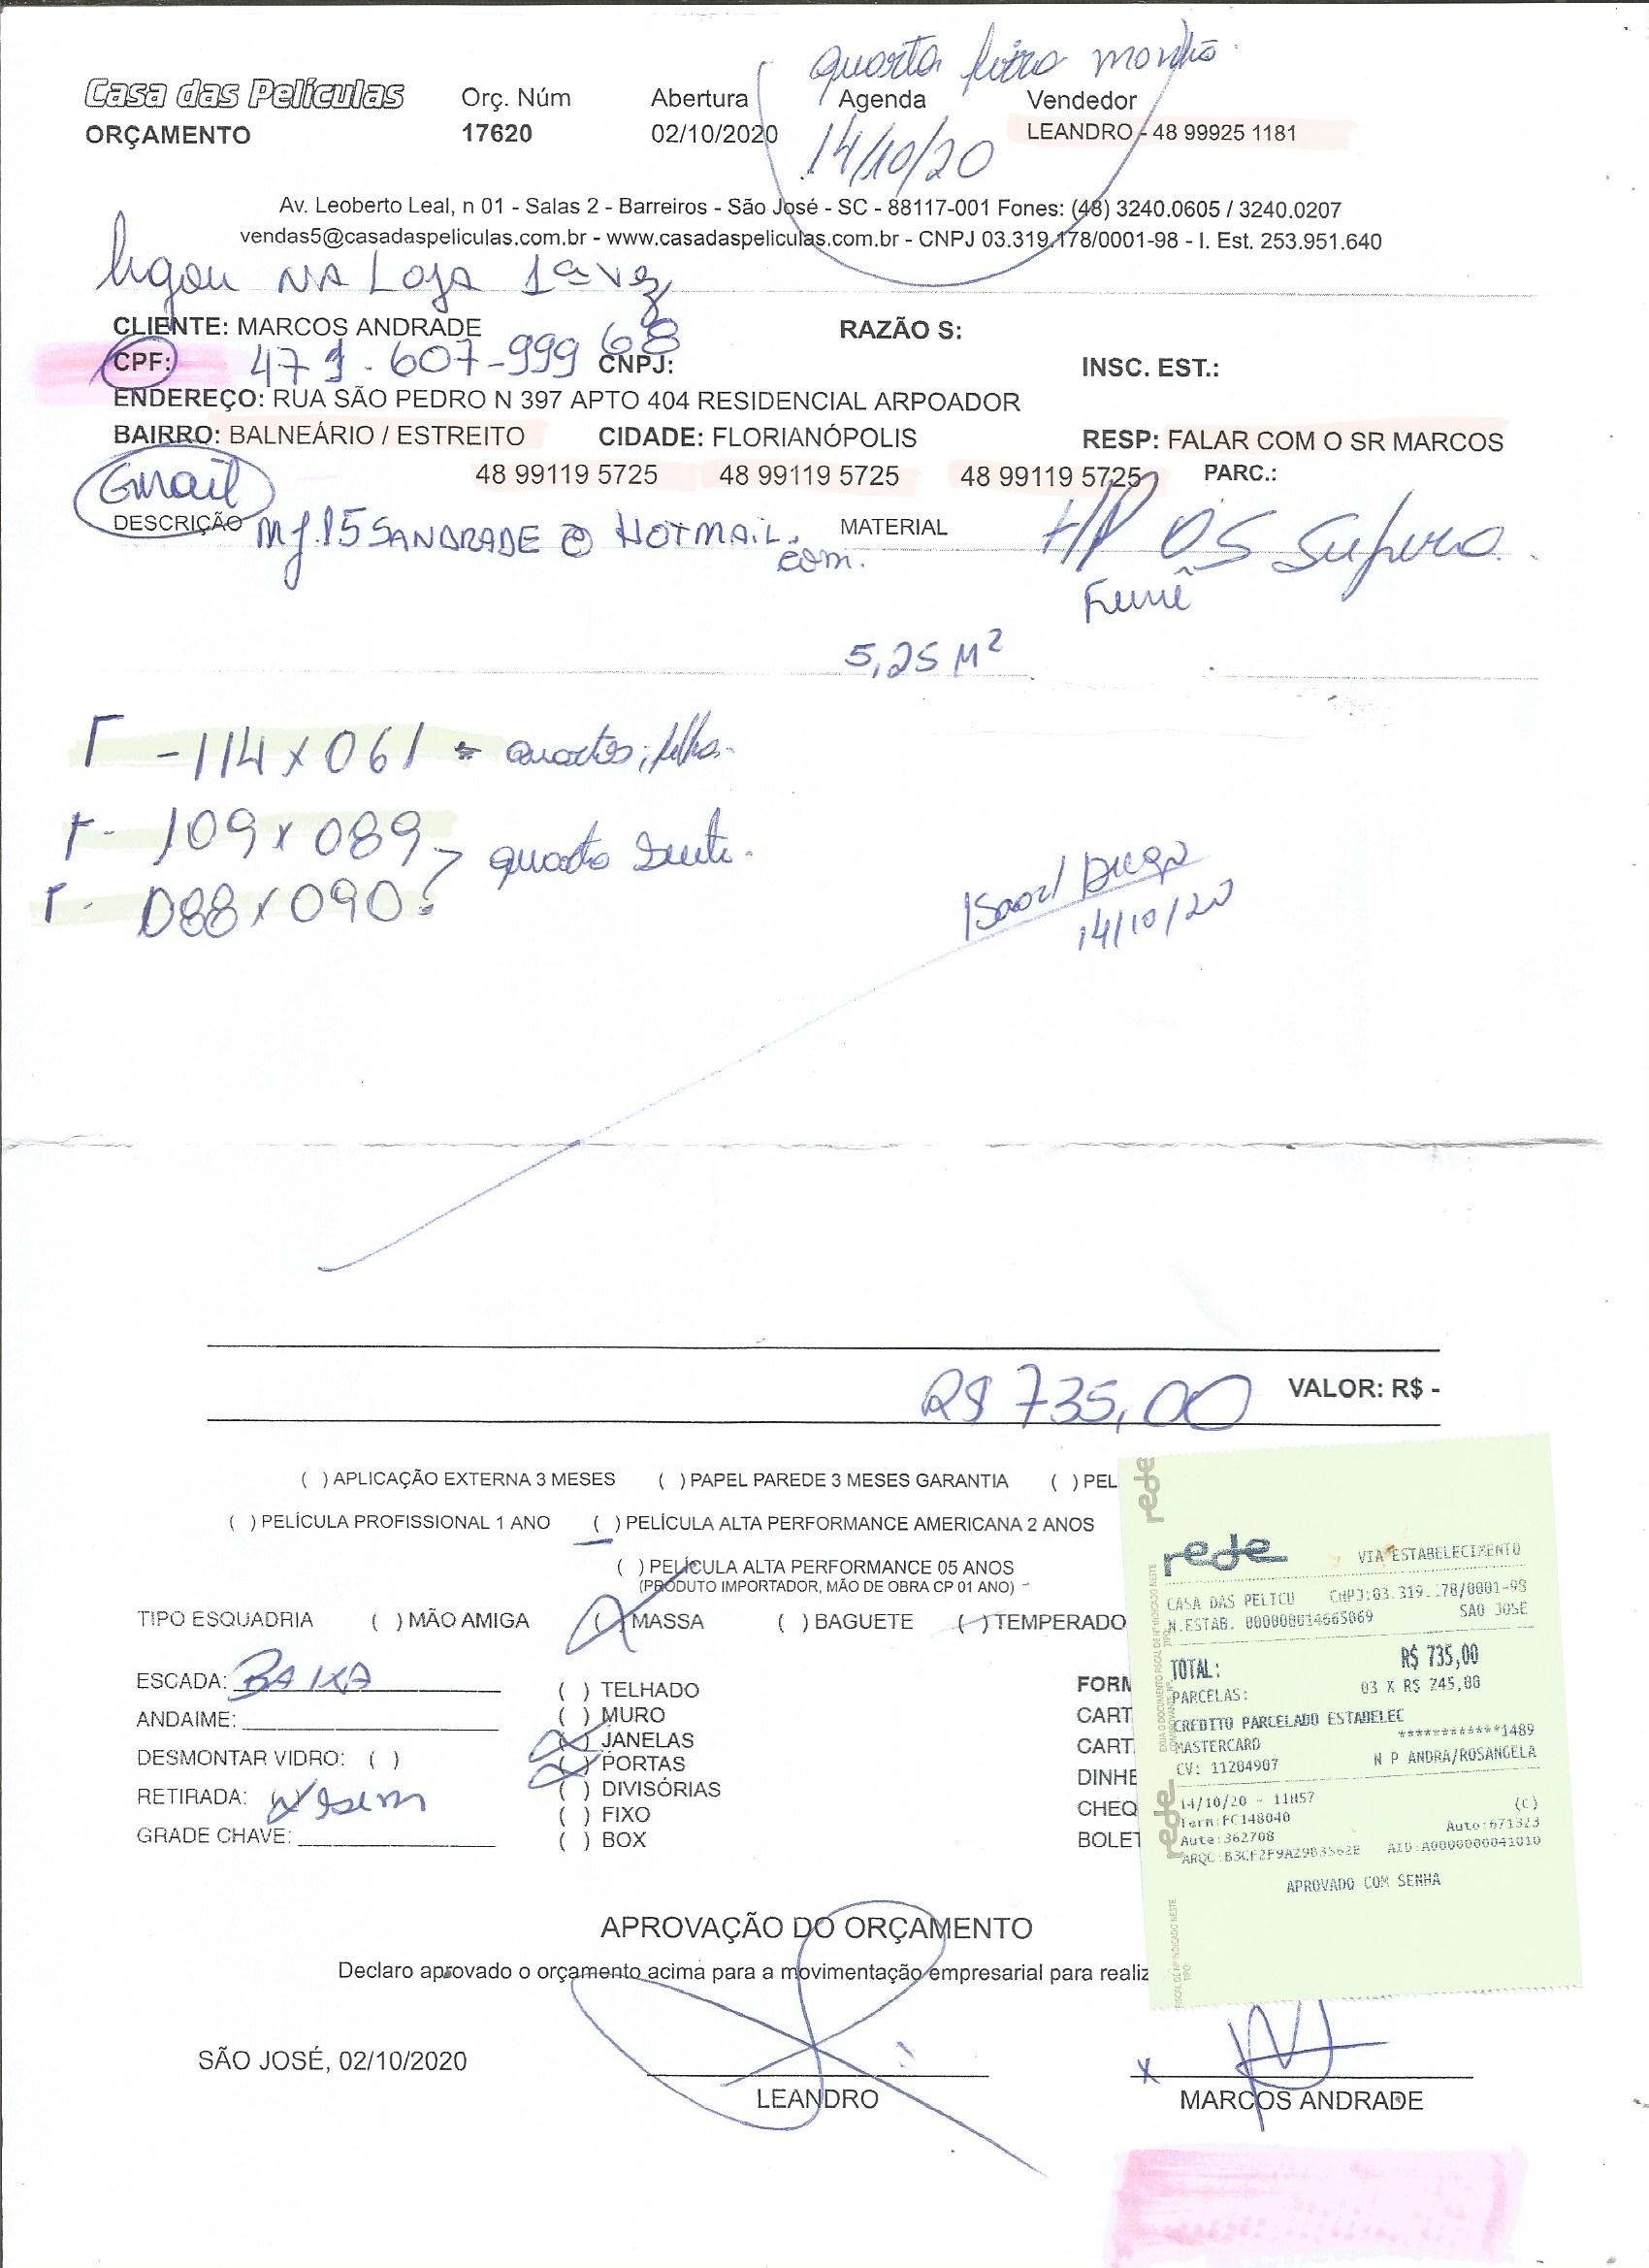 quarta feira manhã
Casa das Películas
Orç. Núm Abertura Agenda Vendedor
ORÇAMENTO 17620 02/10/2020 14/10/20 LEANDRO - 48 99925 1181
Av. Leoberto Leal, n 01 - Salas 2 - Barreiros - São José - SC - 88117-001 Fones: (48) 3240.0605 / 3240.0207
vendas5@casadaspeliculas.com.br - www.casadaspeliculas.com.br - CNPJ 03.319.178/0001-98 - I. Est. 253.951.640
ligou NA LOJA 1ª vez
CLIENTE: MARCOS ANDRADE RAZÃO S:
CPF: 471.607-999 68 CNPJ: INSC. EST.:
ENDEREÇO: RUA SÃO PEDRO N 397 APTO 404 RESIDENCIAL ARPOADOR
BAIRRO: BALNEÁRIO / ESTREITO CIDADE: FLORIANÓPOLIS RESP: FALAR COM O SR MARCOS
Gmail 48 99119 5725 48 99119 5725 48 99119 5725 PARC.:
DESCRIÇÃO Mf.15SANDRADE @ HOTMAIL.com. MATERIAL H/P 05 Supera.
Fumê
5,25 M²
-114 x 061
109 x 089 quarto
088 x 090
14/10/20
R$ 735,00 VALOR: R$ -
( ) APLICAÇÃO EXTERNA 3 MESES ( ) PAPEL PAREDE 3 MESES GARANTIA ( ) PEL
( ) PELÍCULA PROFISSIONAL 1 ANO ( ) PELÍCULA ALTA PERFORMANCE AMERICANA 2 ANOS
( ) PELÍCULA ALTA PERFORMANCE 05 ANOS
(PRODUTO IMPORTADOR, MÃO DE OBRA CP 01 ANO)
TIPO ESQUADRIA ( ) MÃO AMIGA ( ) MASSA ( ) BAGUETE ( ) TEMPERADO
ESCADA: BAIXA
ANDAIME:
DESMONTAR VIDRO: ( )
RETIRADA: X sem
GRADE CHAVE:
( ) TELHADO
( ) MURO
(X) JANELAS
(X) PORTAS
( ) DIVISÓRIAS
( ) FIXO
( ) BOX
FORM
CART
CART
DINHE
CHEQ
BOLET
rede
rede VIA ESTABELECIMENTO
CASA DAS PELICU CNPJ:03.319.178/0001-98
N.ESTAB. 000000014665069 SAO JOSE
TOTAL: R$ 735,00
PARCELAS: 03 X R$ 245,00
CREDITO PARCELADO ESTABELEC
MASTERCARD ************1489
CV: 11204907 N P ANDRA/ROSANGELA
14/10/20 - 11H57
Term:PC148040 (C)
Aute:362708 Auto:671323
AID:A0000000041010
APROVADO COM SENHA
rede
APROVAÇÃO DO ORÇAMENTO
Declaro aprovado o orçamento acima para a movimentação empresarial para realiz
SÃO JOSÉ, 02/10/2020
X
LEANDRO MARCOS ANDRADE